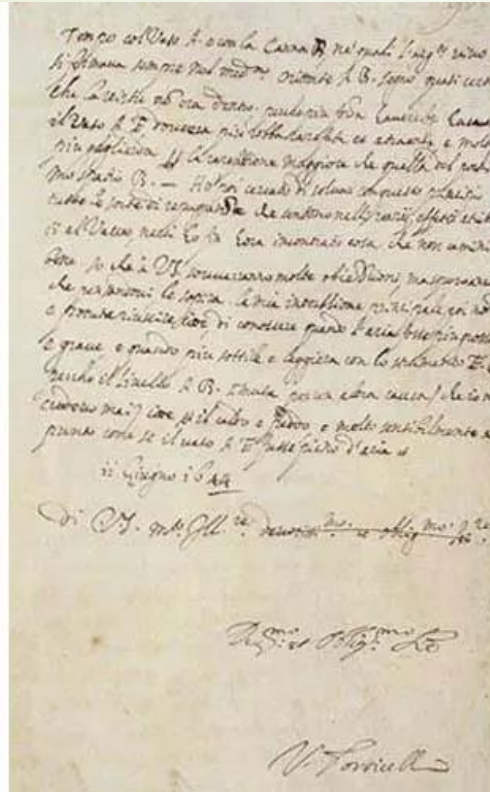 tempo col Vaso A. o con la Canna B. ne' quali l'arg.to vivo
si fermava sempre nel med.mo orizonte A B. segno quasi certo
che la virtù nō era dentro; perche più forza
il Vaso A E. dove era più robba rarefatta, et attraente, e molto
più gagliarda la rarefazione maggiore che quella del
mo spazio B. — Hò poi cercato di salvar con questo principio
tutte le sorte di repugnanze che sentono nelli varij effetti attribu
ti al Vacuo, nelli hò fin hora incontrato cosa, che non camini
bene. so che à V S. sovveranno molte obiezzioni, ma spero anche
che pensando le sopira. la mia intenzione principale poi nō
è potuta riuscire, cioè di conoscere quando l'aria fusse più grossa
e grave, e quando più sottile e leggiera con lo strumento E
perche il livello A B. si muta per un altra causa (che io n
credevo mai) cioè p il caldo e freddo, e molto sensibilmente a
punto come se il vaso A E fusse pieno d'aria
11 Giugno 1644
Di V.S. m.to Ill.re
V. Torricelli